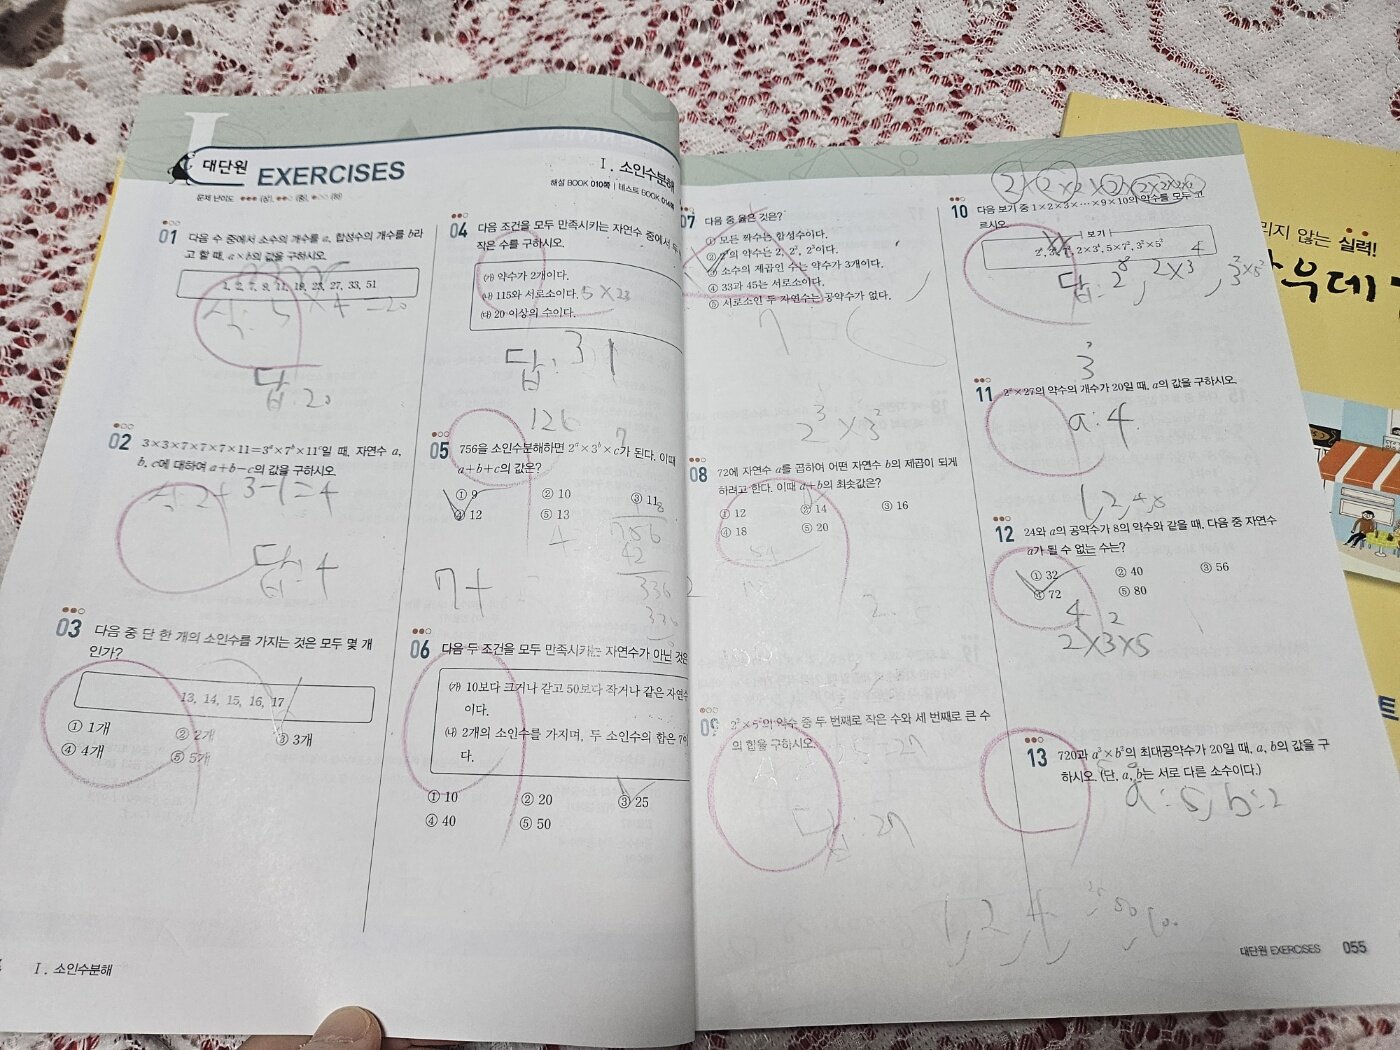 대단원 EXERCISES
Ⅰ. 소인수분해
해설 BOOK 010쪽 | 테스트 BOOK 014쪽
문제 난이도 (상), (중), (하)
01 다음 수 중에서 소수의 개수를 a, 합성수의 개수를 b라
고 할 때, a×b의 값을 구하시오.
27, 33, 51
식: 5×4=20
답:20
02 3×3×7×7×7×11=3ᵃ×7ᵇ×11ᶜ일 때, 자연수 a,
b, c에 대하여 a+b-c의 값을 구하시오.
식:2+3-1=4
답:4
03 다음 중 단 한 개의 소인수를 가지는 것은 모두 몇 개
인가?
13, 14, 15, 16, 17
① 1개 ② 2개 ③ 3개
④ 4개 ⑤ 5개
Ⅰ. 소인수분해
04 다음 조건을 모두 만족시키는 자연수 중에서
작은 수를 구하시오.
㈎ 약수가 2개이다.
㈏ 115와 서로소이다. 5×23
㈐ 20 이상의 수이다.
답:31
126
05 756을 소인수분해하면 2ᵃ×3ᵇ×c가 된다. 이때
a+b+c의 값은?
① 9 ② 10 ③ 11
④ 12 ⑤ 13
756
42
336
336
7+
06 다음 두 조건을 모두 만족시키는 자연수가 아닌 것은
㈎ 10보다 크거나 같고 50보다 작거나 같은 자연수
이다.
㈏ 2개의 소인수를 가지며, 두 소인수의 합은 7이
다.
① 10 ② 20 ③ 25
④ 40 ⑤ 50
07 다음 중 옳은 것은?
① 모든 짝수는 합성수이다.
③ 소수의 제곱인 수는 약수가 3개이다.
④ 33과 45는 서로소이다.
⑤ 서로소인 두 자연수는 공약수가 없다.
2³×3²
08 72에 자연수 a를 곱하여 어떤 자연수 b의 제곱이 되게
하려고 한다. 이때 a+b의 최솟값은?
① 12 ② 14 ③ 16
④ 18 ⑤ 20
09 약수 중 두 번째로 작은 수와 세 번째로 큰 수
의 합을 구하시오.
답:27
10 다음 보기 중 1×2×3×⋯×9×10의 약수를 모두 고
르시오.
보기
2×3⁴, 5×7², 3²×5³
답: 2⁸, 2×3⁴, 3²×5²
3³
11 2ᵃ×27의 약수의 개수가 20일 때, a의 값을 구하시오.
a:4
1,2,4,8
12 24와 a의 공약수가 8의 약수와 같을 때, 다음 중 자연수
a가 될 수 없는 수는?
① 32 ② 40 ③ 56
④ 72 ⑤ 80
2⁴×3²×5
13 720과 a³×b²의 최대공약수가 20일 때, a, b의 값을 구
하시오. (단, a, b는 서로 다른 소수이다.)
a:5, b:2
1, 2, 4
대단원 EXERCISES 055
리지 않는 실력!
우데